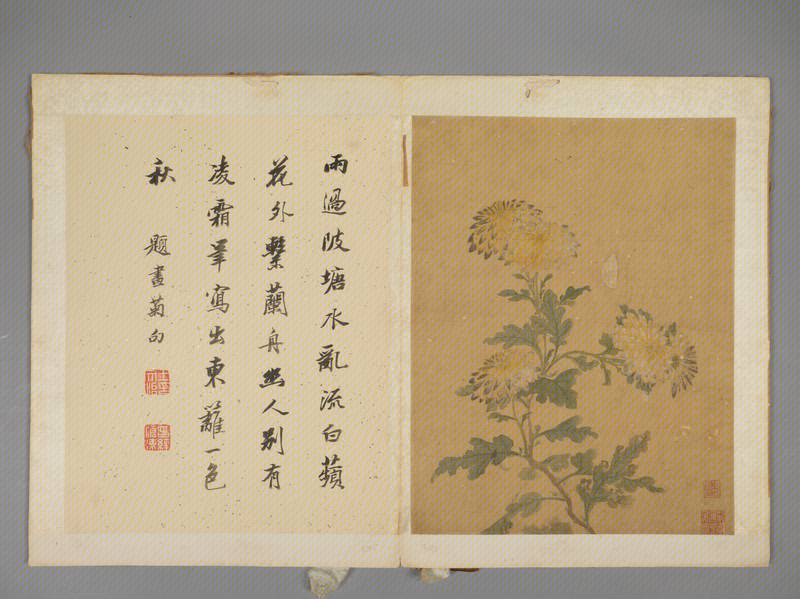 雨過陂塘水亂流白蘋
花外繫蘭舟幽人別有
凌霜筆寫出東籬一色
秋
題畫菊句